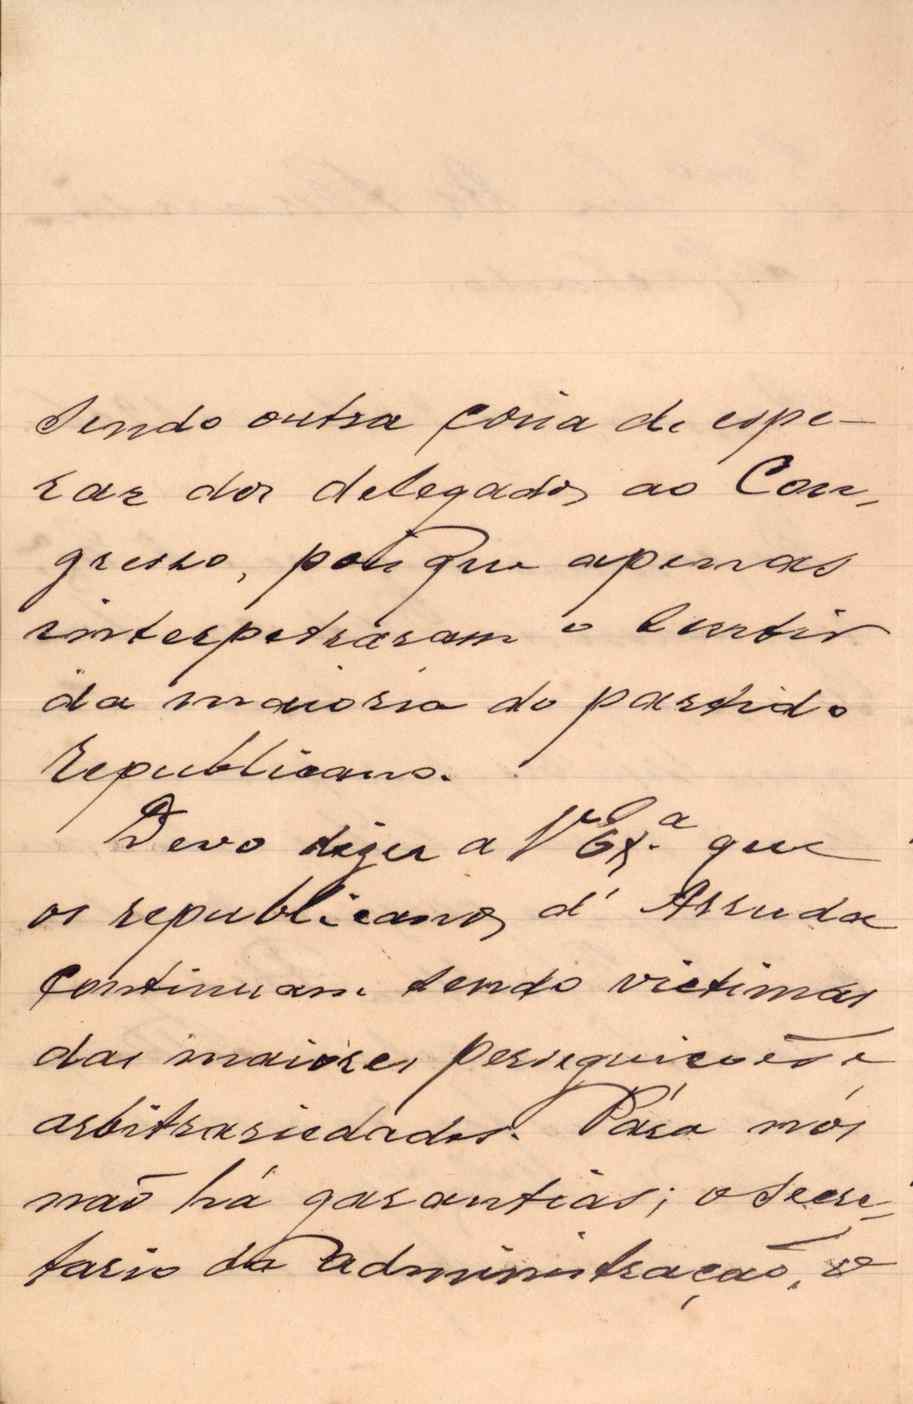 sendo outra coisa de espe-
rar dos delegados ao Con-
gresso, pois que apenas
interpetraram o sentir
da maioria do partido
republicano.
Devo dizer a V Ex.ª que
os republicanos d' Arruda
continuam sendo victimas
das maiores perseguições e
arbitrariedades. Pára nós
não há garantias; o secre-
tario da administração, o